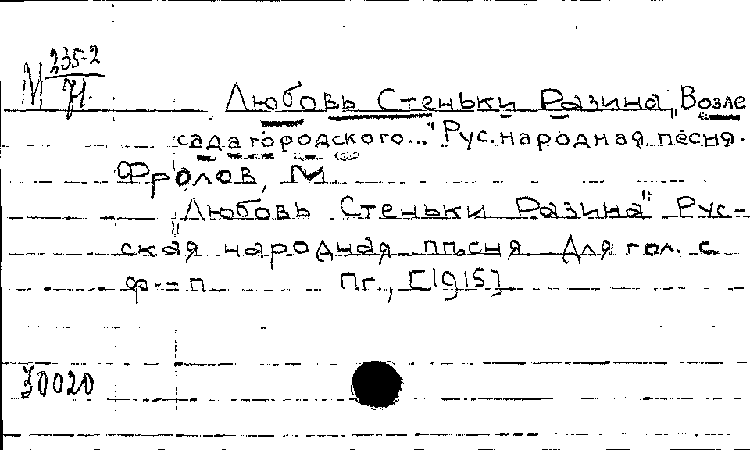 М 235-2
71
Любовь Стеньки Разина „Возле
сада городского..." Рус. народная песня.
Фролов, М.
„Любовь Стеньки Разина" Рус-
ская народная пѣсня Для гол. с
ф-п Пг., [1915]
30020